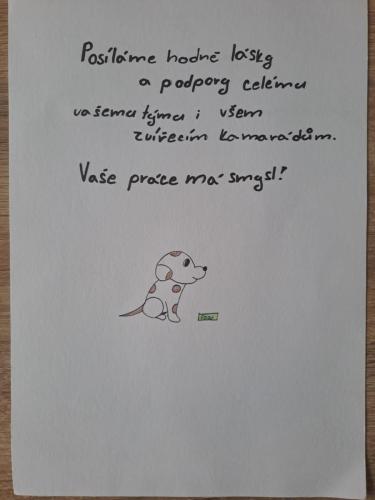 Posíláme hodně lásky
a podpory celému
vašemu týmu i všem
zvířecím kamarádům.
Vaše práce má smysl!